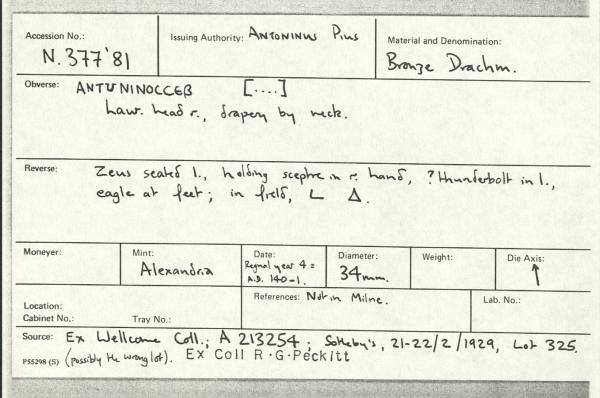 Accession No.:
N.377'81
Issuing Authority: ANTONINUS PIUS
Material and Denomination:
Bronze Drachm.
Obverse: ANTWNINOCCEB [....]
Laur. head r., drapery by neck.
Reverse: Zeus seated l., holding sceptre in r. hand, ?thunderbolt in l.,
eagle at feet; in field, L Δ.
Moneyer:
Mint:
Alexandria
Date:
Regnal year 4 =
A.D. 140-1.
Diameter:
34mm.
Weight:
Die Axis:
↑
Location:
Cabinet No.: Tray No.:
References: Not in Milne.
Lab. No.:
Source: Ex Wellcome Coll.; A 213254; Sotheby's, 21-22/2/1929, Lot 325.
P55298 (S) (possibly the wrong lot). Ex Coll R.G.Peckitt